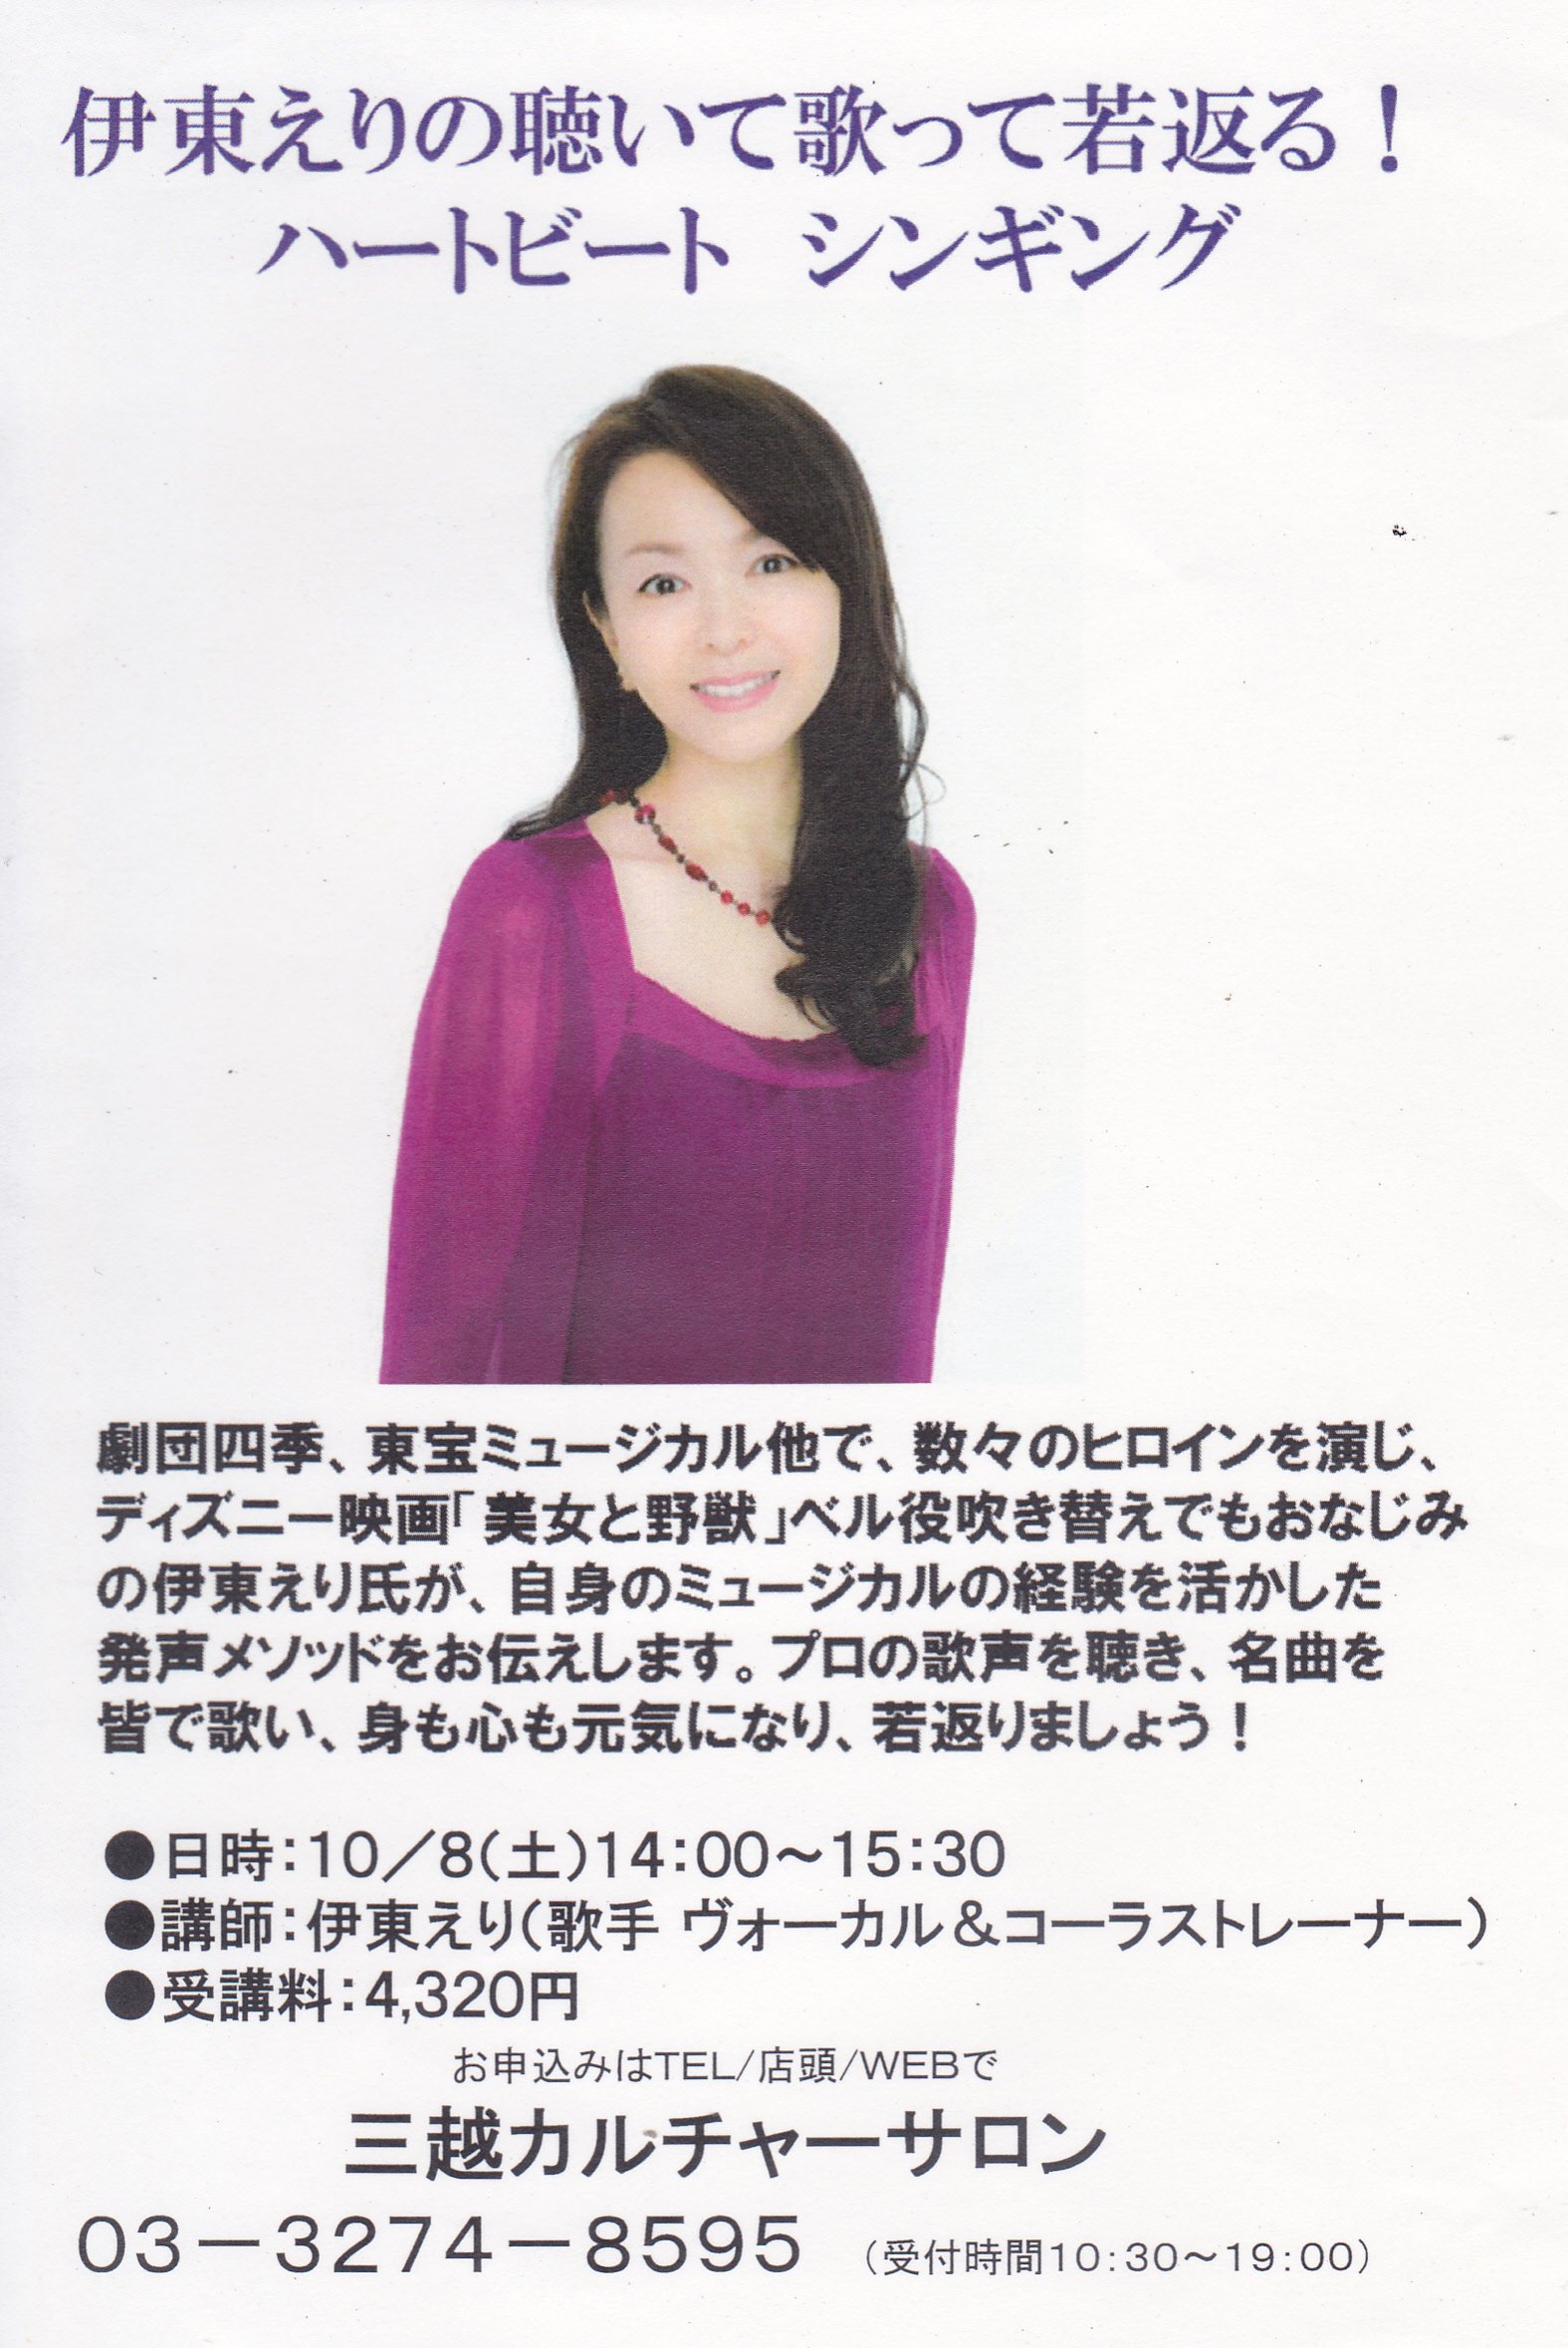 伊東えりの聴いて歌って若返る！
ハートビート シンギング
劇団四季、東宝ミュージカル他で、数々のヒロインを演じ、
ディズニー映画「美女と野獣」ベル役吹き替えでもおなじみ
の伊東えり氏が、自身のミュージカルの経験を活かした
発声メソッドをお伝えします。プロの歌声を聴き、名曲を
皆で歌い、身も心も元気になり、若返りましょう！
●日時：10／8（土）14：00～15：30
●講師：伊東えり（歌手 ヴォーカル＆コーラストレーナー）
●受講料：4,320円
お申込みはTEL/店頭/WEBで
三越カルチャーサロン
03－3274－8595 （受付時間10：30～19：00）